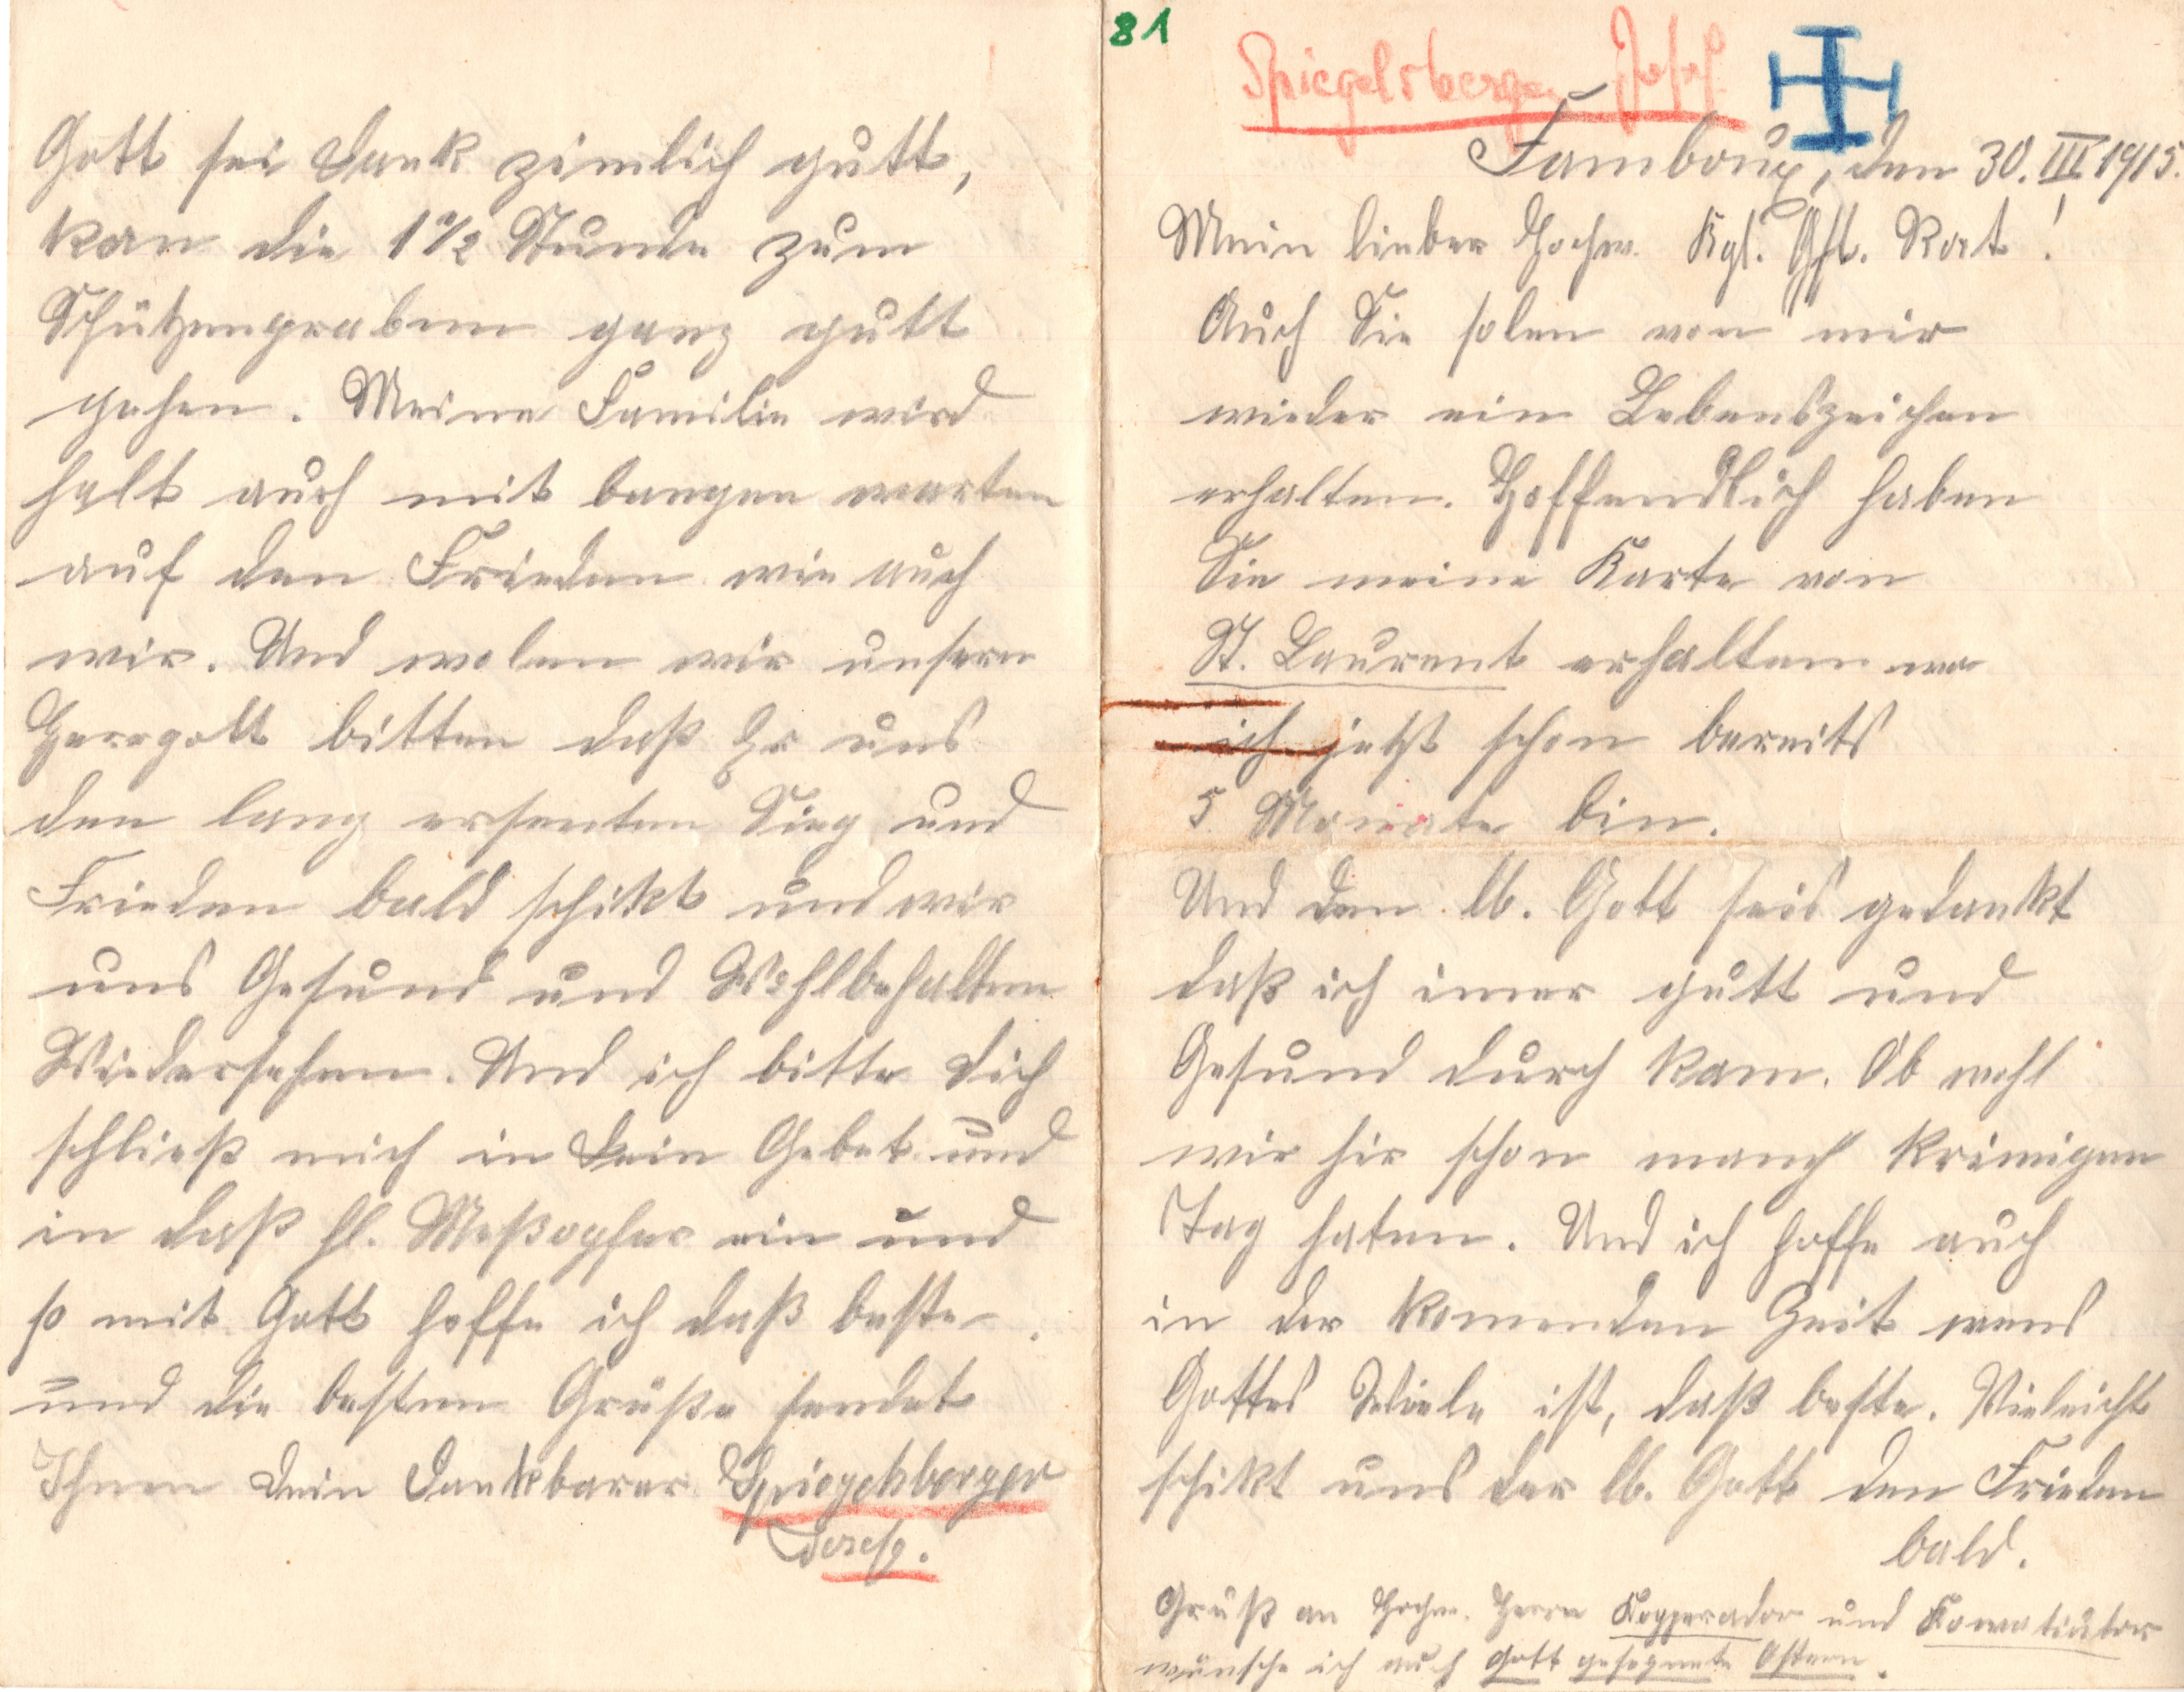 81
Spiegelsberger Josef
Famboux, den 30. III 1915.
Mein lieber Hochw. Kgl. Gstl. Rat!
Auch Sie solen von mir
wieder ein Lebenszeichen
erhalten. Hoffendlich haben
Sie meine Karte von
St. Laurent erhalten wo
ich jetzt schon bereits
5 Monate bin.
Und den lb. Gott seis gedankt
daß ich imer gutt und
Gesund durch kam. Ob wohl
wir hir schon manch krimigen
Tag haten. Und ich hoffe auch
in der komenden Zeit wens
Gottes Wiele ist, daß beste. Vieleicht
schikt uns der lb. Gott den Frieden
bald.
Gruß an Hochw. Herrn Kopperador und Kowatiutor
wünsche ich auch Gott gesegnete Ostern.
Gott sei Dank zimlich gutt,
kan die 1 1/2 Stunde zum
Schützengraben ganz gutt
gehen. Meine Familie wird
halt auch mit bangen warten
auf den Frieden wie auch
wir. Und wolen wir unsern
Herrgott bitten daß Er uns
den lang ersenten Sieg und
Frieden bald schikt und wir
uns Gesund und Wohlbehalten
Wiedersehen. Und ich bitte Dich
schließ mich in Dein Gebet und
in daß hl. Meßopfer ein und
so mit Gott hoffe ich daß beste.
und die besten Grüße sendet
Ihnen Dein Dankbarer Spiegelsberger
Josef.